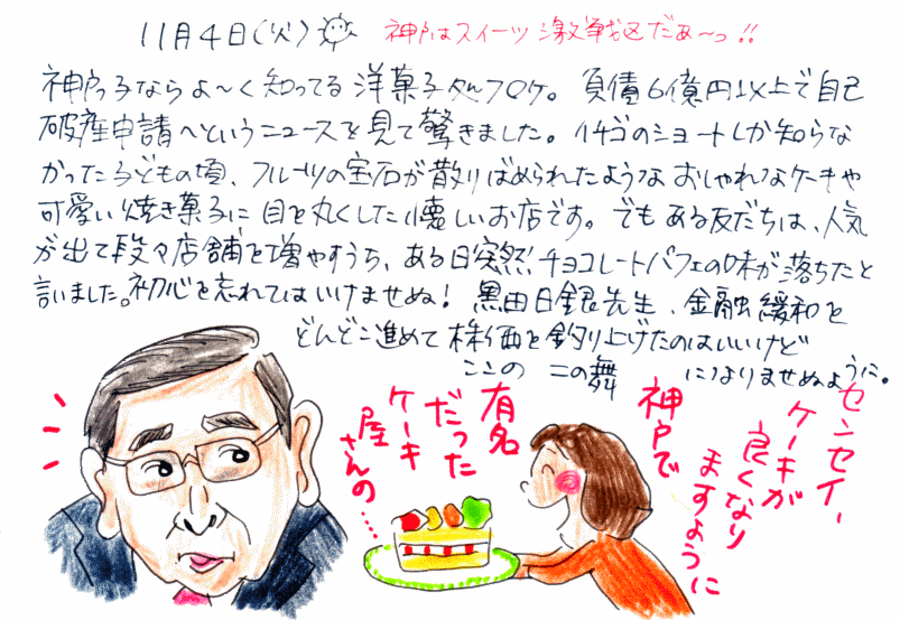 11月4日(火) 神戸はスイーツ激戦区だぁ〜っ!!
神戸っ子ならよ〜く知ってる洋菓子処フロケ。負債6億円以上で自己
破産申請へというニュースを見て驚きました。イチゴのショートしか知らな
かった子どもの頃、フルーツの宝石が散りばめられたようなおしゃれなケーキや
可愛い焼き菓子に目を丸くした懐しいお店です。でもある友だちは、人気
が出て段々店舗を増やすうち、ある日突然チョコレートパフェの味が落ちたと
言いました。初心を忘れてはいけませぬ! 黒田日銀先生、金融緩和を
どんどこ進めて株価を釣り上げたのはいいけど
ここの 二の舞 になりませぬように。
センセイ、
ケーキが
良くなり
ますように
神戸で
有名
だった
ケーキ
屋さんの……